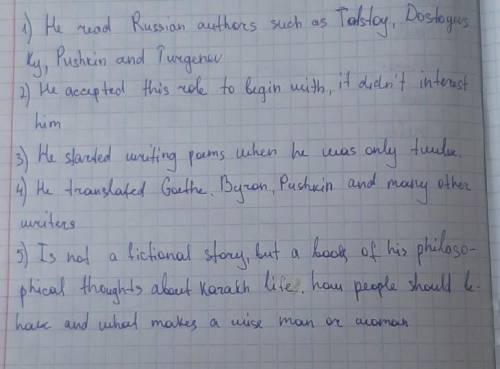 1) He read Russian authors such as Tolstoy, Dostoyevs
ky, Pushkin and Turgenev
2) He accepted this role to begin with, it didn't interest
him
3) He started writing poems when he was only twelve.
4) He translated Goethe, Byron, Pushkin and many other
writers
5) Is not a fictional story, but a book of his philoso-
phical thoughts about Kazakh life, how people should be-
have and what makes a wise man or woman